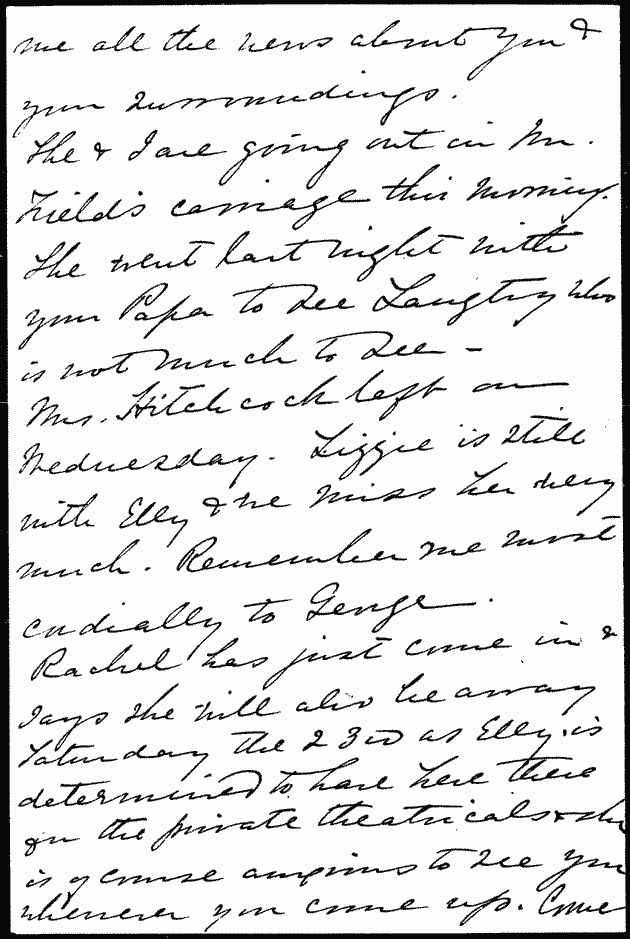 me all the news about you &
your surroundings.
She & I are going out in Mr.
Field's carriage this morning.
She went last night with
your Papa to see Langtry who
is not much to see -
Mrs. Hitchcock left on
Wednesday. Lizzie is still
with Elly & we miss her very
much. Remember me most
cordially to George.
Rachel has just come in &
says she will also be away
Saturday the 23rd as Elly is
determined to have here there
for the private theatricals & she
is of course anxious to see you
whenever you come up. Come